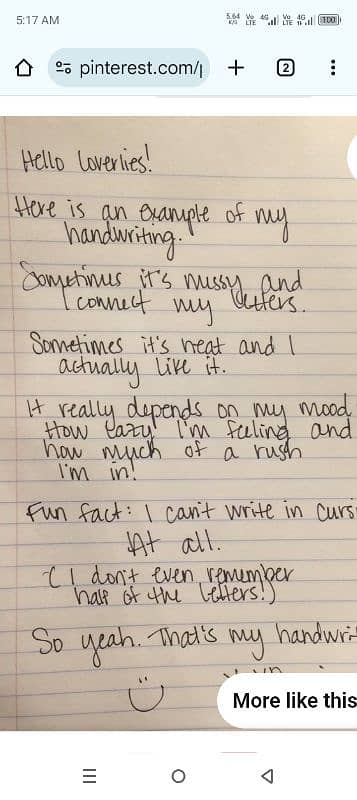 5:17 AM 5.64 K/S Vo LTE 4G Vo LTE 4G 100
pinterest.com/ 2
Hello Loverlies!
Here is an example of my
handwriting.
Sometimes it's messy and
I connect my letters.
Sometimes it's neat and I
actually like it.
It really depends on my mood
How Lazy I'm feeling and
how much of a rush
I'm in!
Fun fact: I can't write in curs
At all.
(I don't even remember
half of the letters!)
So yeah. That's my handwri
More like this